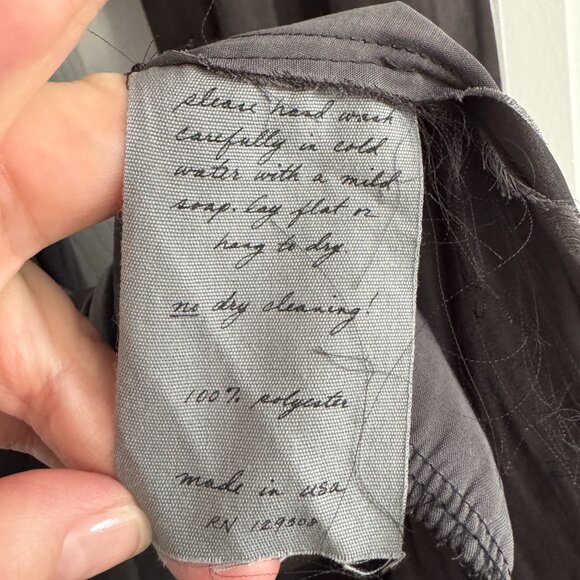 please hand wash
carefully in cold
water with a mild
soap. lay flat or
hang to dry
no dry cleaning!
100% polyester
made in usa
RN